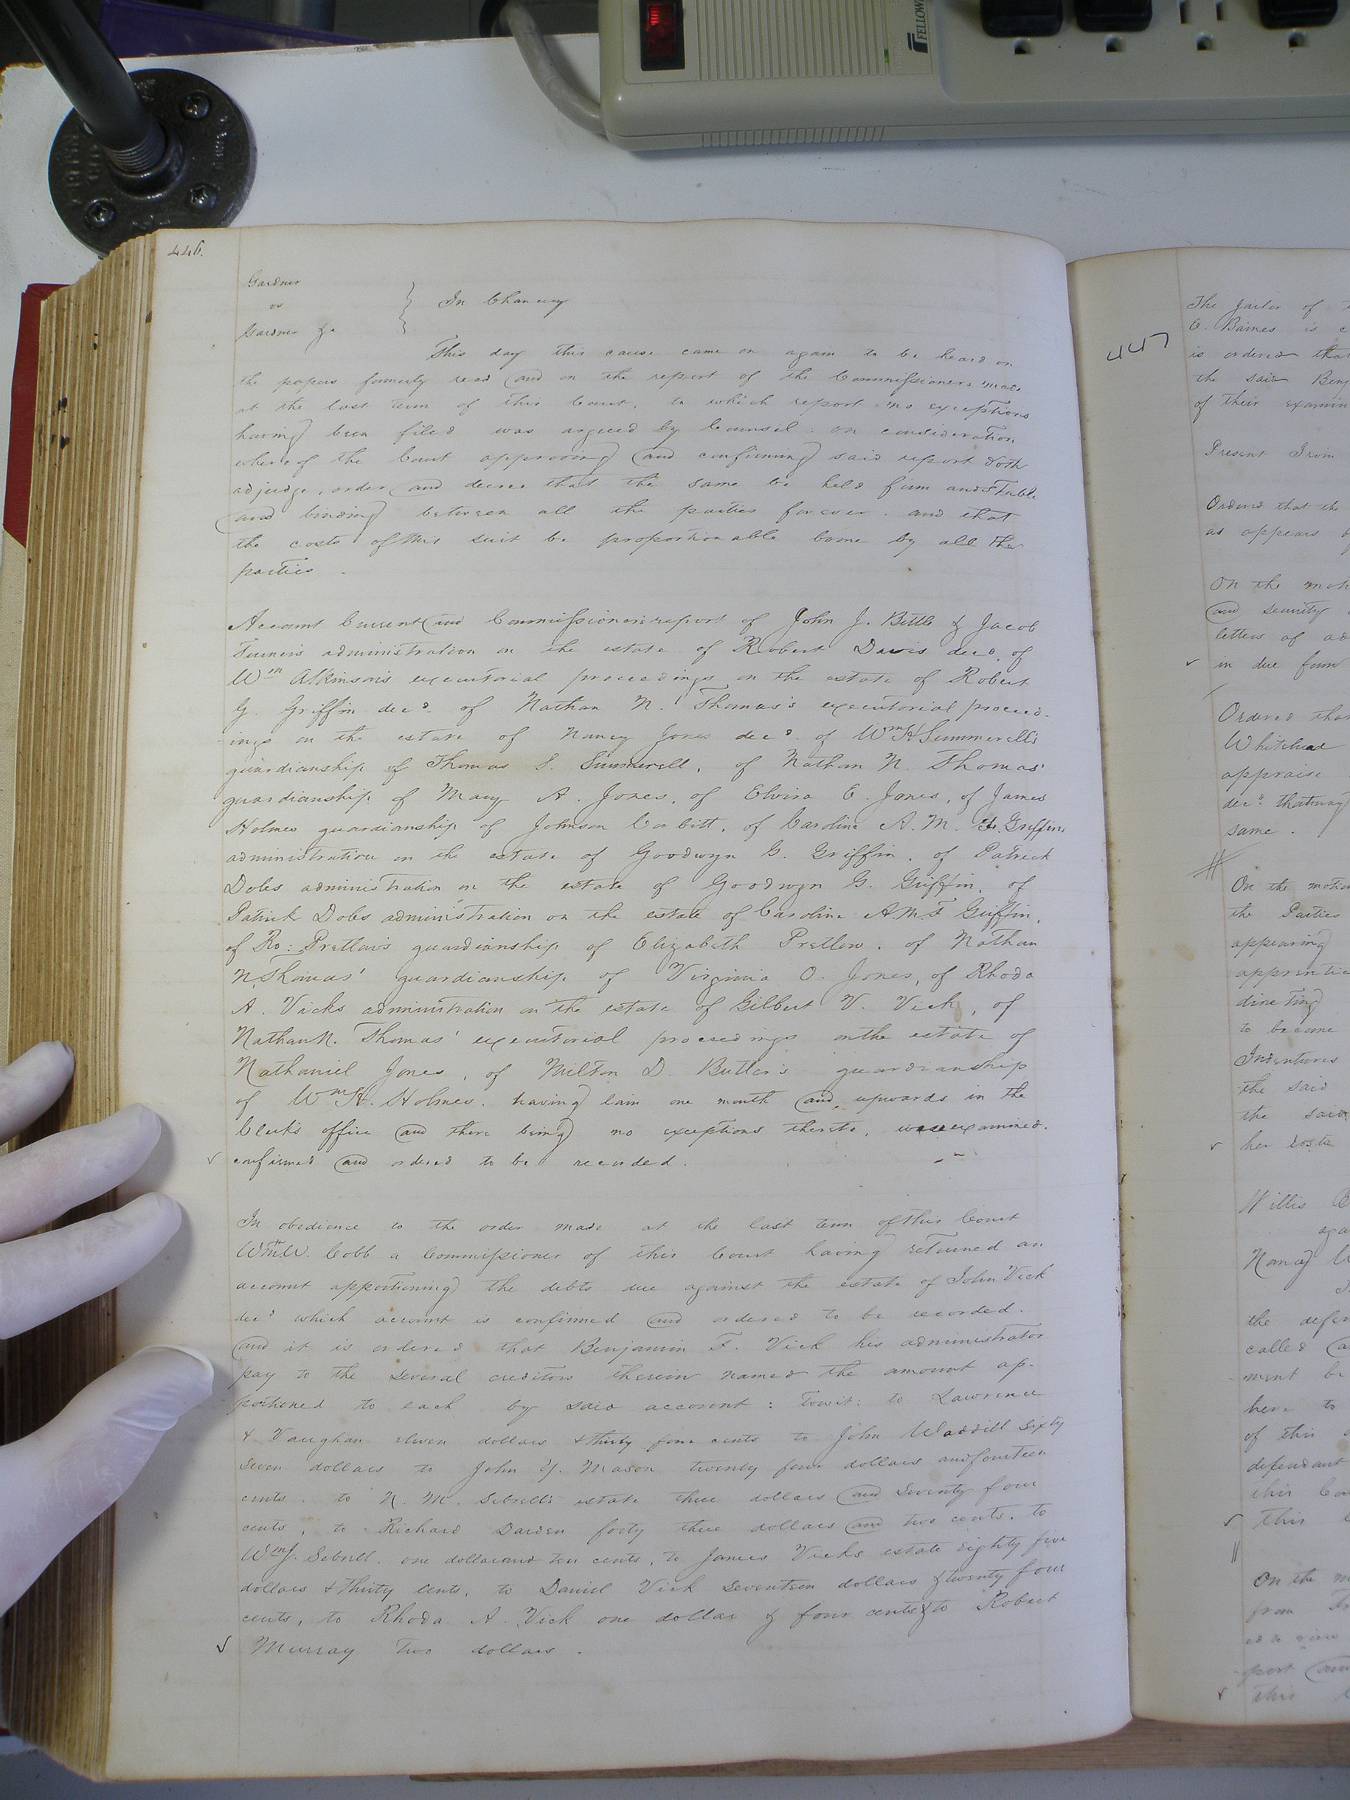 FELLOW
446.
Gardner
vs
Gardner &c
In Chancery
This day this cause came on again to be heard on
the papers formerly read and on the report of the Commissioners made
at the last term of this Court, to which report no exceptions
having been filed was argued by Counsel. on consideration
whereof the Court approving and confirming said report doth
adjudge, order and decree that the same be held firm and stable
and binding between all the parties forever. and that
the costs of this suit be proportionable borne by all the
parties.
Account Current and Commissioners report of John J. Bittle & Jacob
Turners administration on the estate of Robert Davis decd. of
Wm Atkinson's executorial proceedings on the estate of Robert
G. Griffin decd. of Nathan N. Thomas's executorial proceed-
ings on the estate of Nancy Jones decd. of Wm H Summerell's
guardianship of Thomas S. Summerell, of Nathan N. Thomas'
guardianship of Mary A. Jones, of Elvira E. Jones, of James
Holmes guardianship of Johnson Corbitt, of Caroline A. M. F. Griffins
administration on the estate of Goodwyn G. Griffin, of Patrick
Dobs administration on the estate of Goodwyn G. Griffin, of
Patrick Dobs administration on the estate of Caroline A M F Griffin,
of Ro: Pretlow's guardianship of Elizabeth Pretlow, of Nathan
N Thomas' guardianship of Virginia O. Jones, of Rhoda
A. Vicks administration on the estate of Gilbert V. Vick, of
Nathan N. Thomas' executorial proceedings on the estate of
Nathaniel Jones, of Milton D. Butler's guardianship
of Wm H. Holmes. having lain one month and upwards in the
Clerk's office and there being no exceptions thereto, were examined.
confirmed and ordered to be recorded.
In obedience to the order made at the last term of this Court
Wm W. Cobb a Commissioner of this Court having returned an
account apportioning the debts due against the estate of John Vick
decd which account is confirmed and ordered to be recorded.
and it is ordered that Benjamin F. Vick his administrator
pay to the several creditors therein named the amount ap-
portioned to each by said account: Towit: to Lawrence
& Vaughan eleven dollars & thirty four cents to John Waddill sixty
seven dollars to John Y. Mason twenty four dollars and fourteen
cents. to N. M. Sebrell's estate three dollars and seventy four
cents, to Richard Darden forty three dollars and two cents, to
Wm J. Sebrell. one dollar and ten cents, to James Vicks estate eighty five
dollars & thirty cents, to Daniel Vick seventeen dollars & twenty four
cents, to Rhoda A. Vick one dollar & four cents & to Robert
Murray two dollars.
447
The Jailor of
C. Barnes is
is ordered that
the said Benj
of their examin
Present
Ordered that the
as appears
On the moti
and security
letters of ad
in due form
Ordered that
Whitehead
appraise
decd. that may
same.
On the motio
the
appearing
apprentice
directing
to become
Indentures
the said
the said
her
Willis
aga
Nancy
the defen
called
ment be
here to
of this
defendant
this Co
this
On the m
from
this